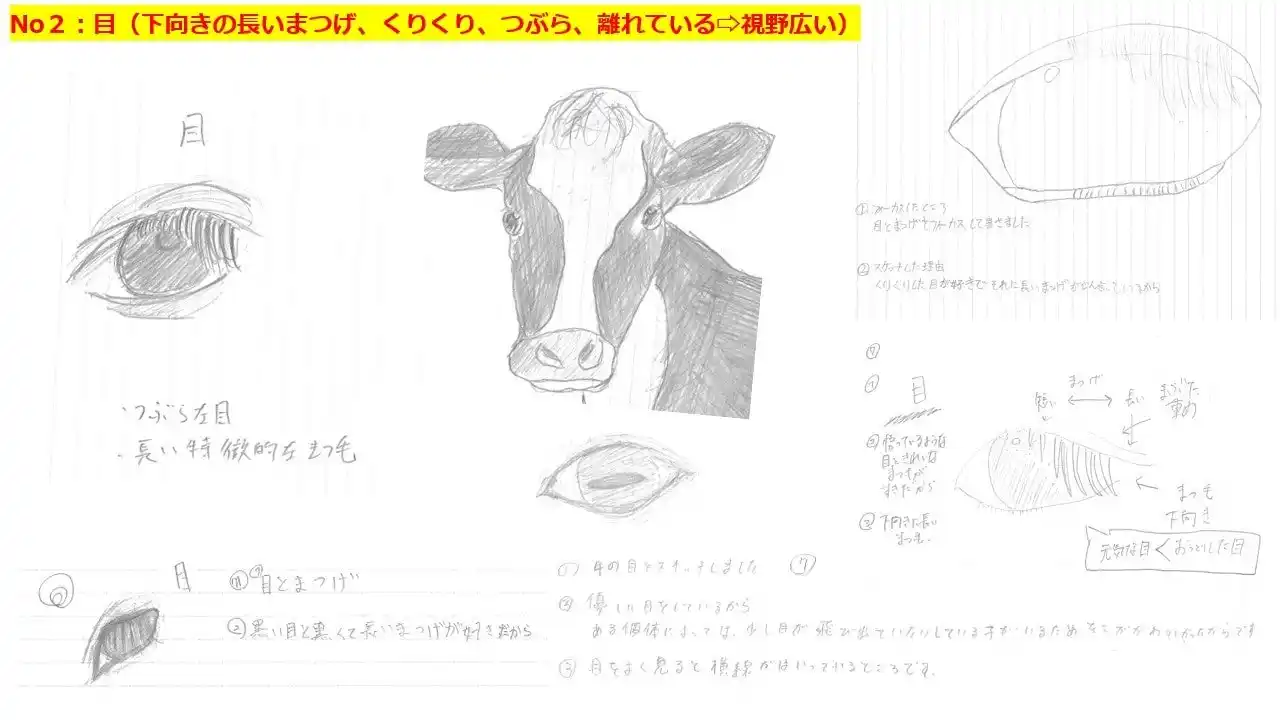 No２：目（下向きの長いまつげ、くりくり、つぶら、離れている⇨視野広い）
目
・つぶらな目
・長い特徴的なまつ毛
① フォーカスしたところ
目とまつげをフォーカスして書きました
② スケッチした理由
くりくりした目が好きで それに長いまつげが
⑦
①
目
まつげ
短い ⟷ 長い
まぶた
重め
② 悟っているような
目ときれいな
まつ毛が
すきだから
③ 下向きに長い
まつ毛。
まつ毛
下向き
元気な目 < おっとりした目
目
① 目とまつげ
② 黒い目と黒くて長いまつげが好きだから
① 牛の目をスケッチしました
⑦
② 優しい目をしているから
ある個体によっては、少し目が飛び出て
③ 目をよく見ると横線がはいっているところです。